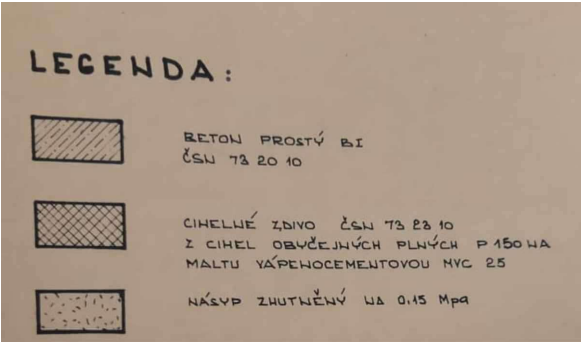 LEGENDA:
BETON PROSTÝ BI
ČSN 73 20 10
CIHELNÉ ZDIVO ČSN 73 23 10
Z CIHEL OBYČEJNÝCH PLNÝCH P 150 NA
MALTU VÁPENOCEMENTOVOU MVC 25
NÁSYP ZHUTNĚNÝ NA 0,15 Mpa